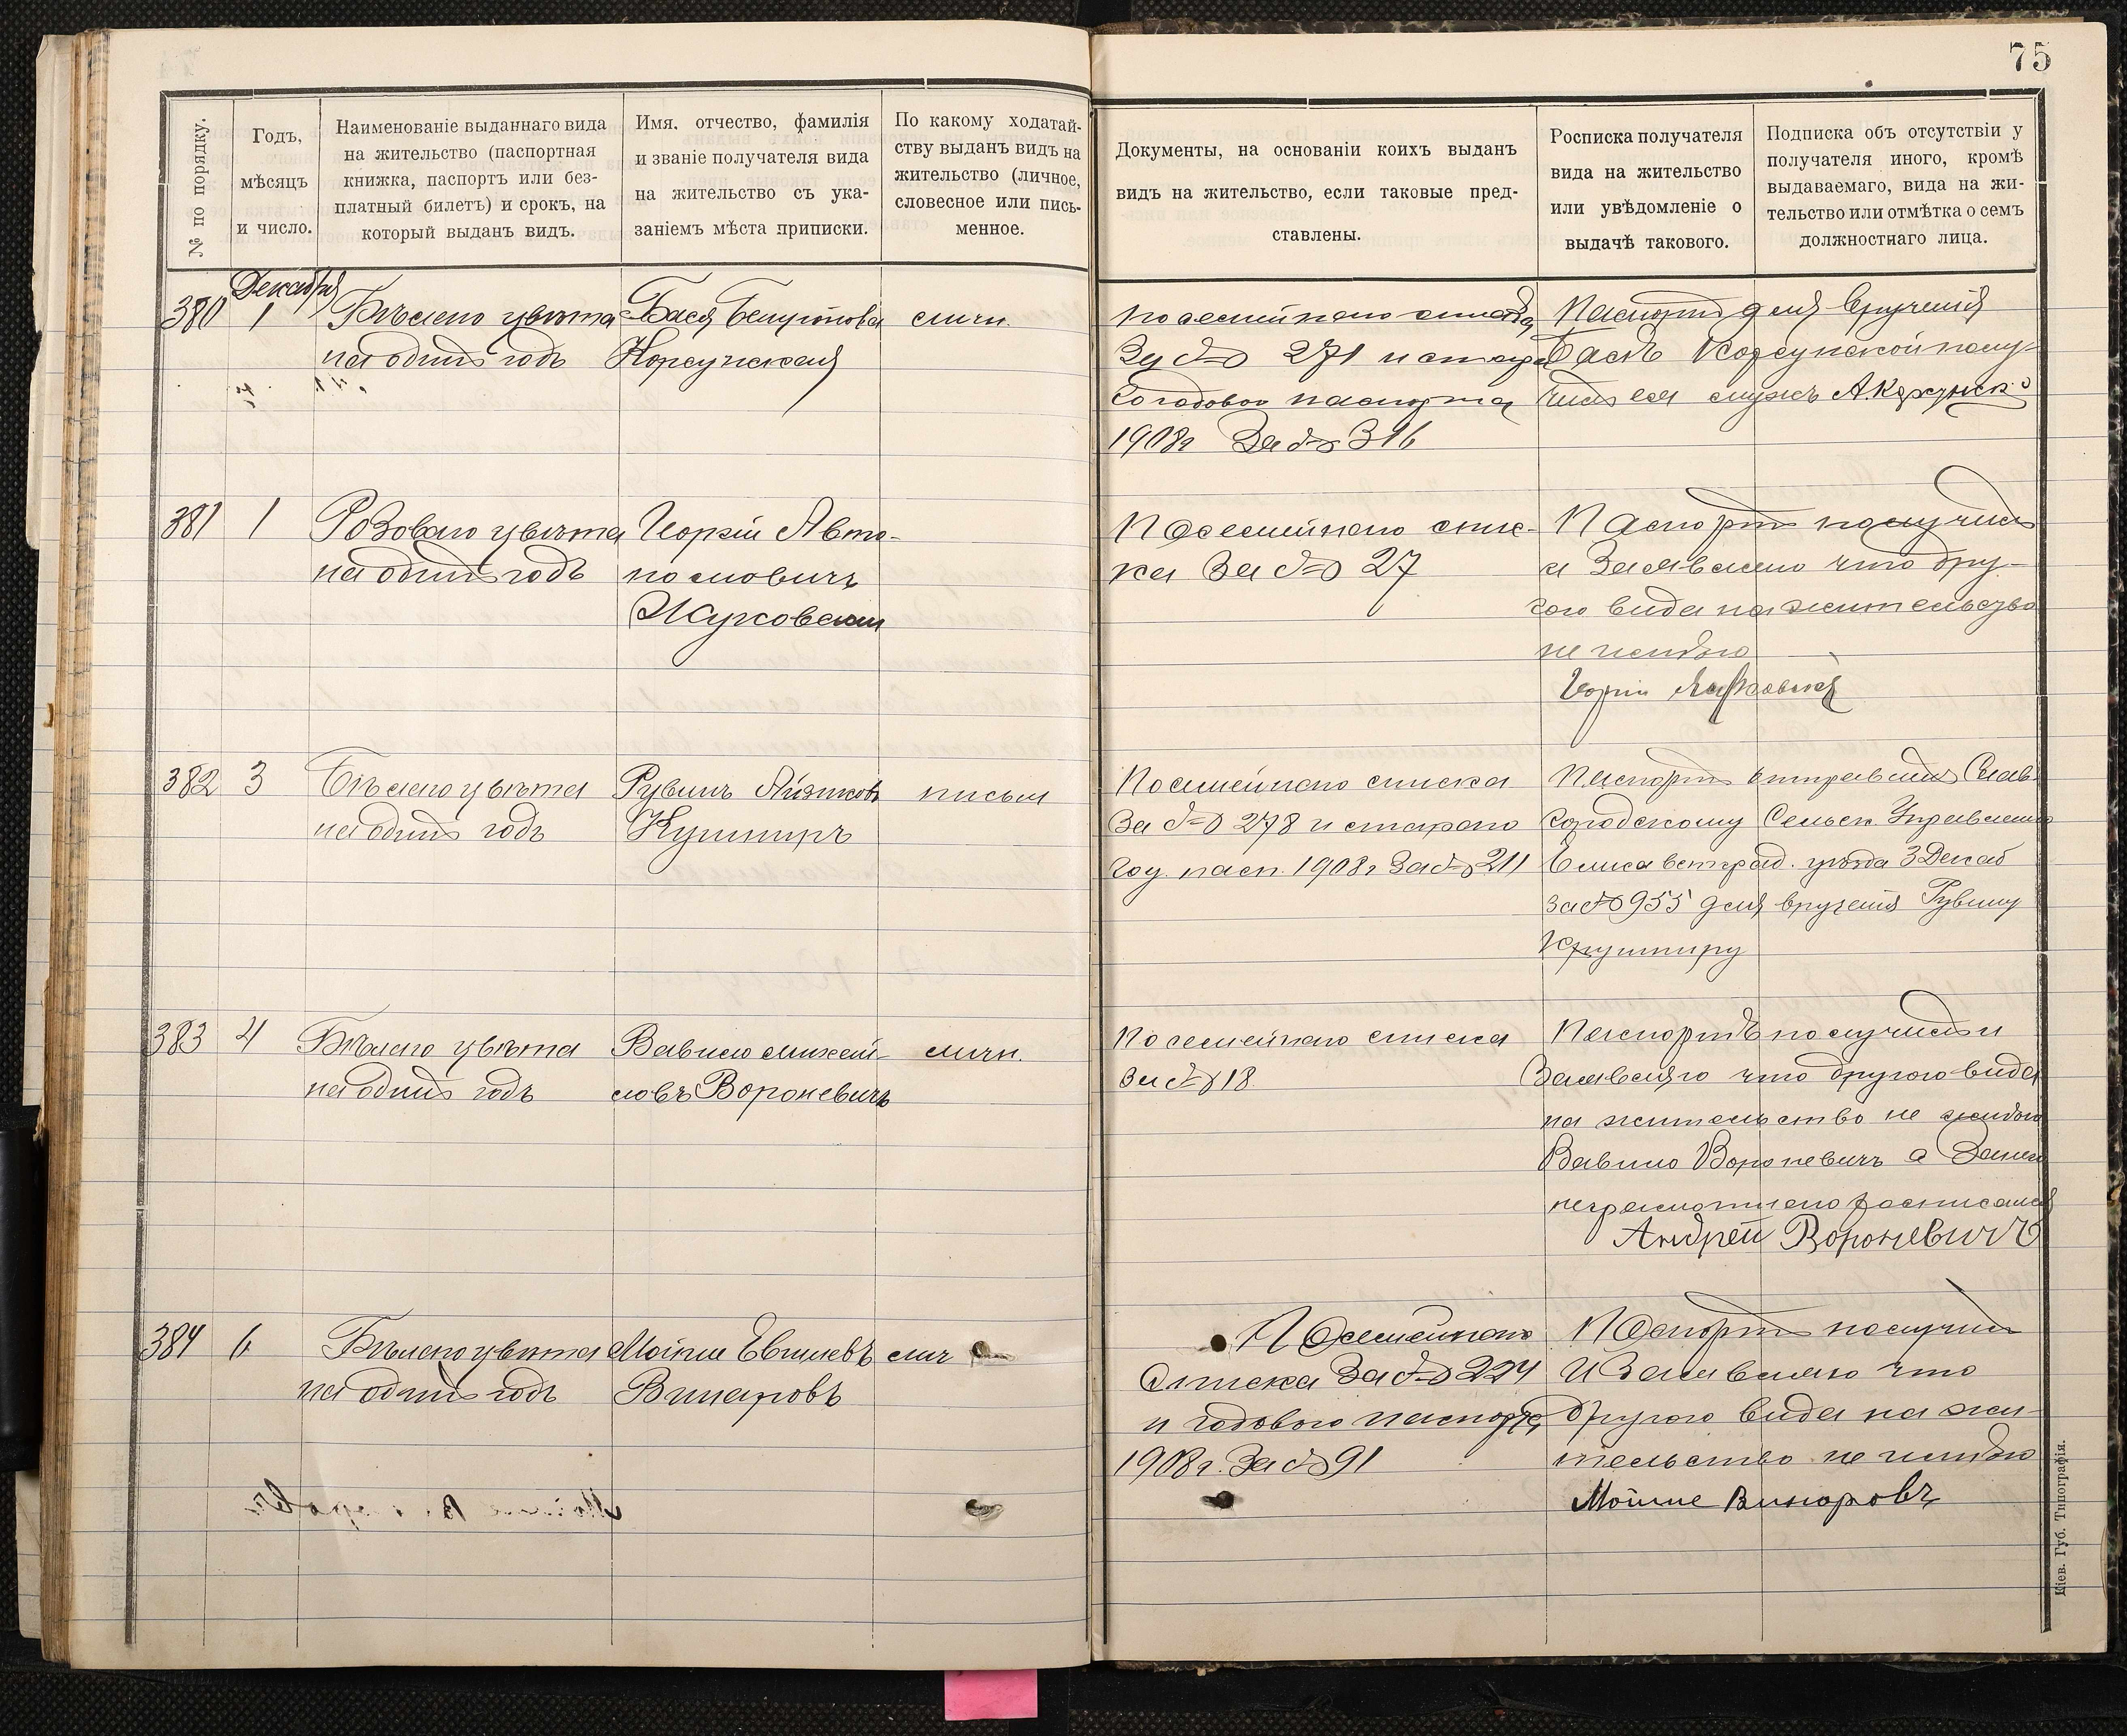 75
№ по порядку.
Годъ,
мѣсяцъ
и число.
Наименованіе выданнаго вида
на жительство (паспортная
книжка, паспортъ или без-
платный билетъ) и срокъ, на
который выданъ видъ.
Имя, отчество, фамилія
и званіе получателя вида
на жительство съ ука-
заніемъ мѣста приписки.
По какому ходатай-
ству выданъ видъ на
жительство (личное,
словесное или пись-
менное.
Документы, на основаніи коихъ выданъ
видъ на жительство, если таковые пред-
ставлены.
Росписка получателя
вида на жительство
или увѣдомленіе о
выдачѣ такового.
Подписка объ отсутствіи у
получателя иного, кромѣ
выдаваемаго, вида на жи-
тельство или отмѣтка о семъ
должностнаго лица.
Декабря
380 1 Бѣлаго цвѣта Бася личн.
на одинъ годъ Корсунская
Посемейнаго списка
За № 271 и стара
го годовог паспорта
1908г За № 316
Паспортъ для врученія
Басѣ Корсунской полу-
чилъ ея мужъ А. Корсунск
381 1 Розоваго цвѣта Георгій Авто-
на одинъ годъ номовичъ
Жуковскій
Посемейнаго спис-
ка За № 27
Паспортъ получилъ
и Заявляю что дру-
гого вида на жительство
не имѣю
382 3 Бѣлаго цвѣта Рувинъ Айзиковъ письм
на одинъ годъ Кушниръ
Посемейнаго списка
За № 278 и стараго
год. пасп. 1908г За № 211
Паспортъ отправленъ Слав
городскому Сельск. Управленію
Елисаветград. уѣзда 3 Декаб
за № 955 для врученія Рувину
Кушниру
383 4 Бѣлаго цвѣта Вавило михай- личн.
на одинъ годъ ловъ Вороневичъ
Посемейнаго списка
За № 18.
Паспортъ получилъ и
Заявляю что другого вида
на жительство не имѣю
Вавило Вороневичъ а За него
неграмотнаго росписался
Андрей Вороневичъ
384 6 Бѣлаго цвѣта Мойше лич
на одинъ годъ Винаровъ
Посемейнаго
Списка За № 224
и годового паспорта
1908г. За № 91
Паспортъ получилъ
и Заявляю что
другого вида на жи-
тельство не имѣю
Мойше Винаровъ
Кіев. Губ. Типографія.